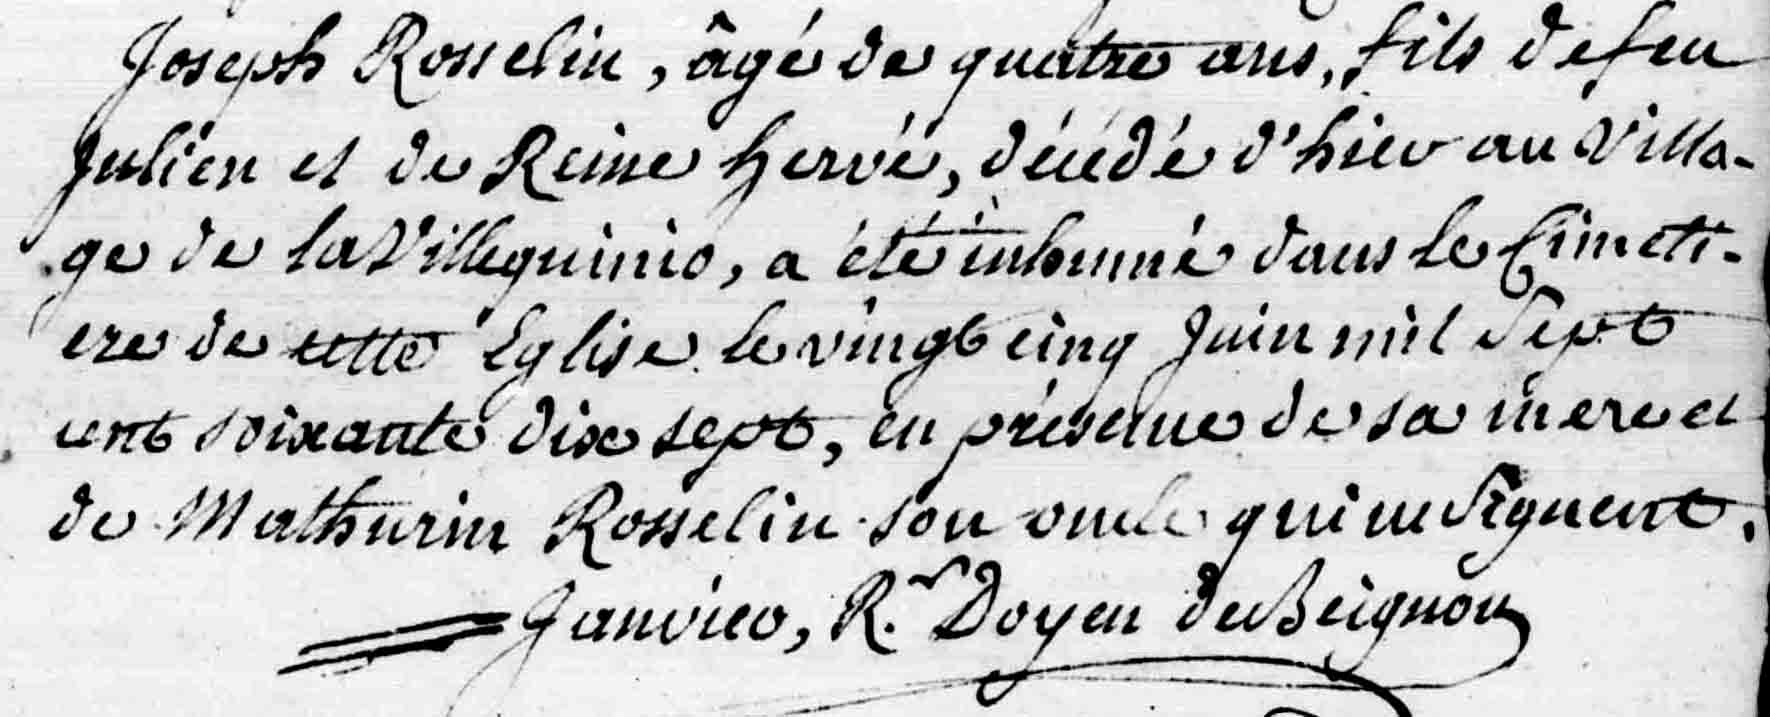 Joseph Rosselin, âgé de quatre ans, fils de feu
Julien et de Reine hervé, décédé d'hier au Villa-
ge de la Villeguinio, a été inhumé dans le Cimeti-
ere de cette Eglise le vingt cinq Juin mil Sept
cent soixante dix sept, en présence de sa mere et
de Mathurin Rosselin son oncle qui ne signent.
Janvier, R.r Doyen de Beignon